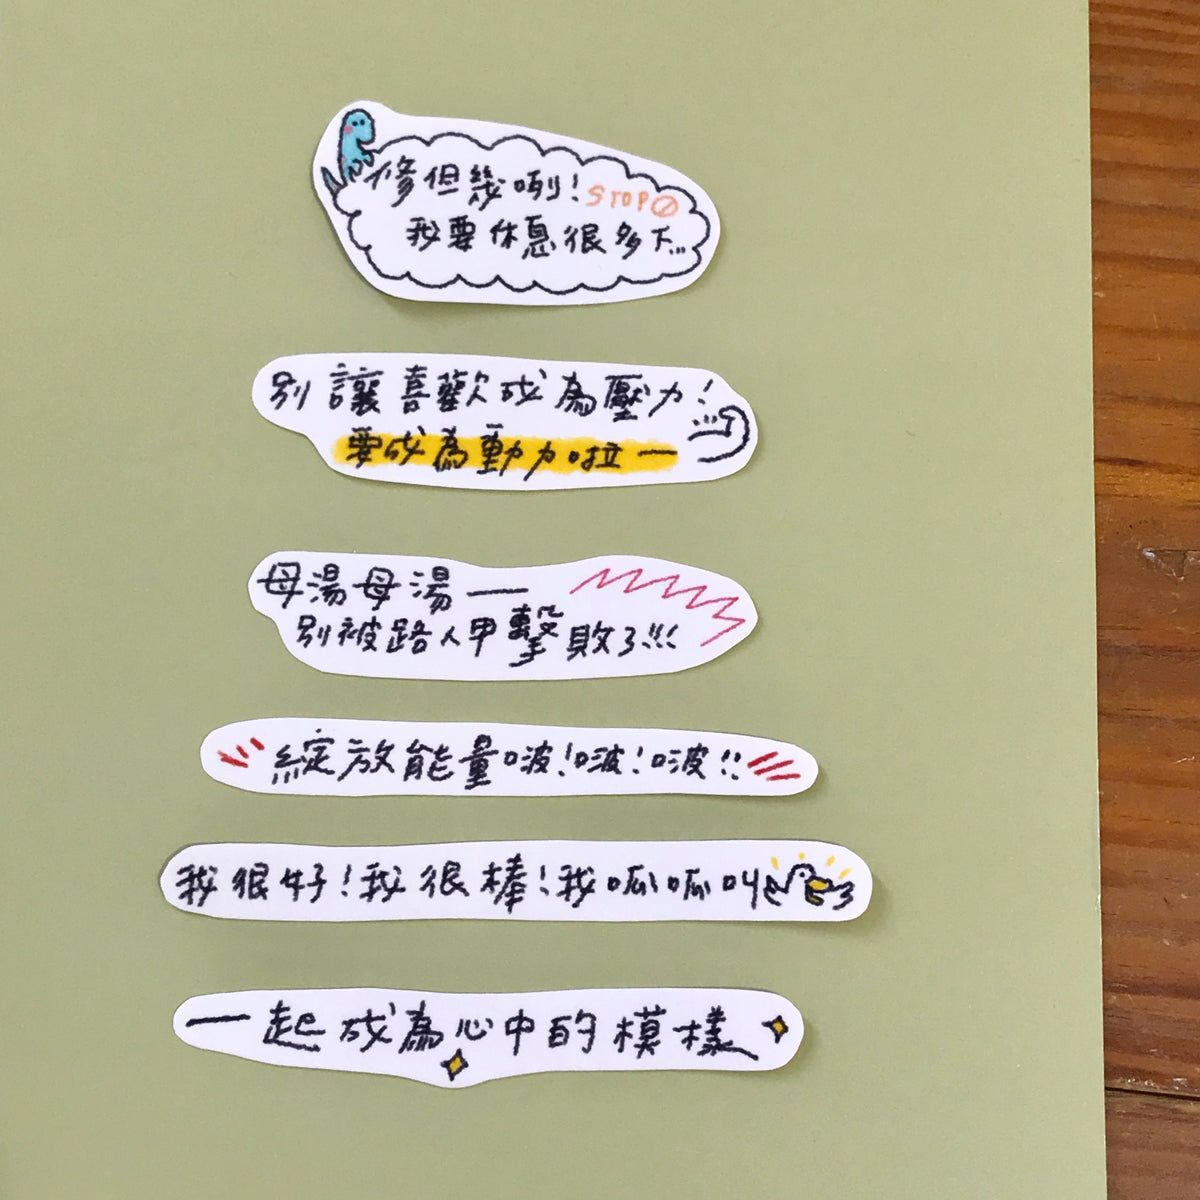 修但幾咧!STOP
我要休息很多下...
別讓喜歡成為壓力!
要成為動力啦一
母湯母湯——
別被路人甲擊敗了!!!
綻放能量啵!啵!啵!!
我很好!我很棒!我呱呱叫
一起成為心中的模樣